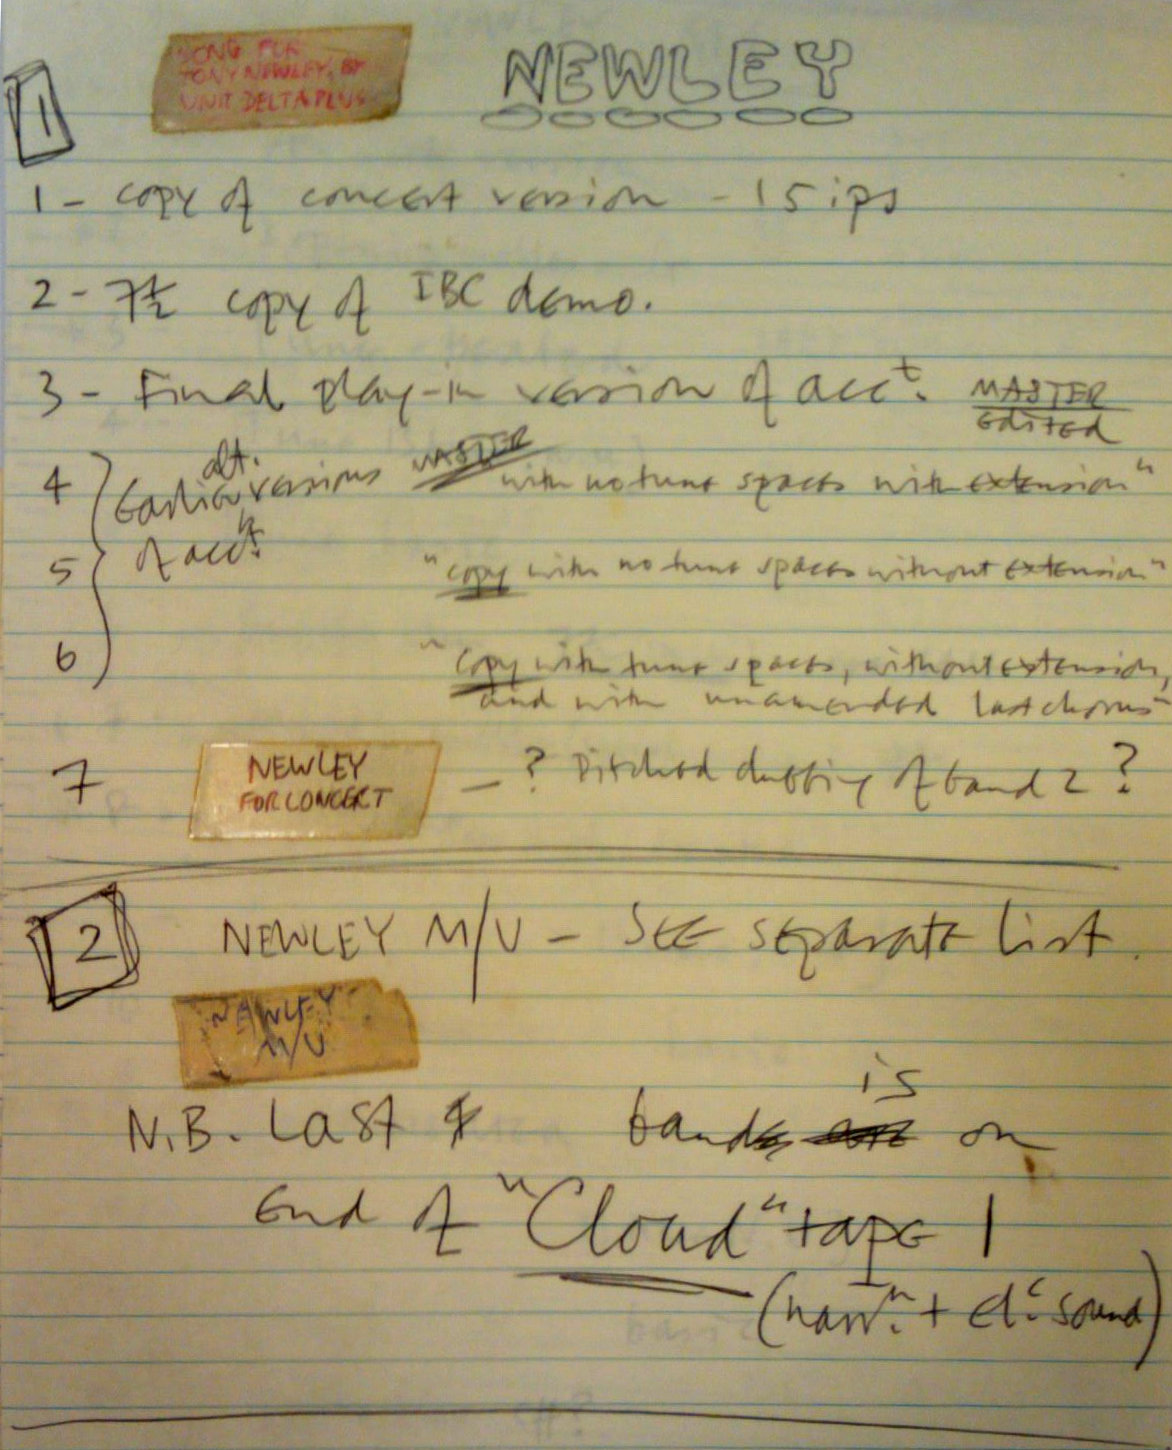 1
SONG FOR
TONY NEWLEY, BY
UNIT DELTA PLUS
NEWLEY
1 - copy of concert version - 15 ips
2 - 7½ copy of IBC demo.
3 - Final play-in version of acct. MASTER
Edited
4 Earlier alt. versions MASTER with no tune spaces with extension"
of acct.
5 "copy with no tune spaces without extension"
6 "copy with tune spaces, without extension,
and with unamended last chorus"
7 NEWLEY
FOR CONCERT
- ? Pitched dubbing of band 2 ?
2 NEWLEY M/U - SEE separate list.
NEWLEY
M/U
N.B. Last band is on
End of "Cloud" tape 1
(narrn. + elc. sound)